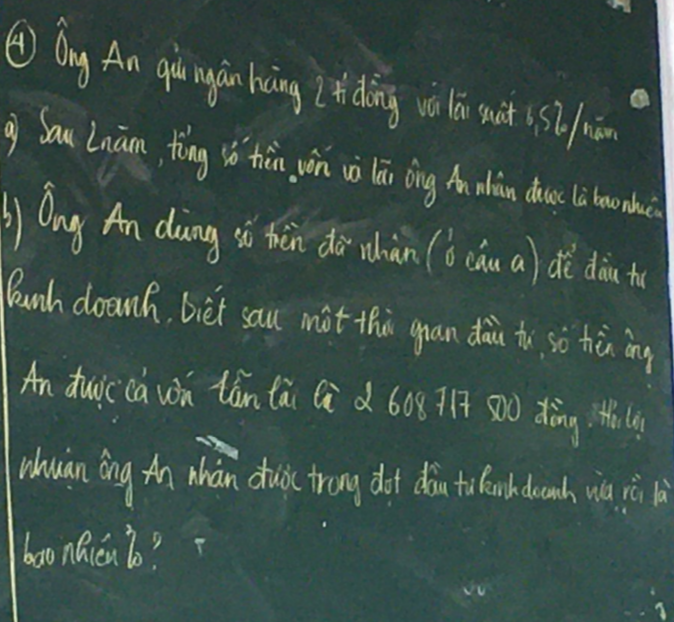 ④ Ông An gửi ngân hàng 2 tỉ đồng với lãi suất 6,5%/năm
a) Sau 2 năm, tổng số tiền vốn và lãi ông An nhận được là bao nhiêu
b) Ông An dùng số tiền đã nhận (ở câu a) để đầu tư
kinh doanh. Biết sau một thời gian đầu tư, số tiền ông
An được cả vốn lẫn lãi là 2 608 717 500 đồng. Hỏi lợi
nhuận ông An nhận được trong đợt đầu tư kinh doanh vừa rồi là
bao nhiêu %?